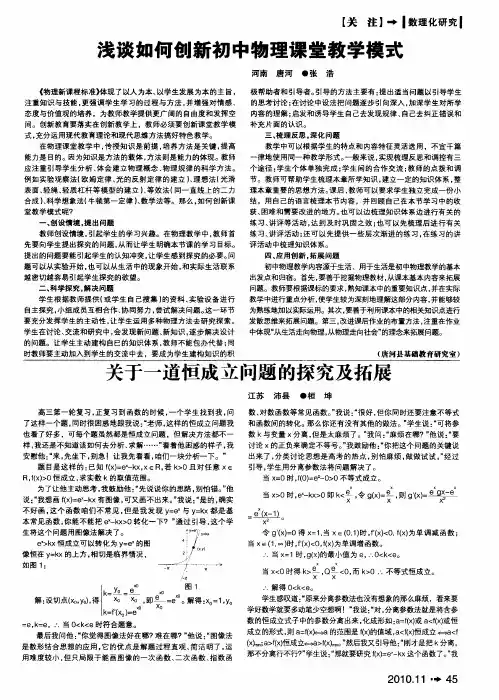 【关 注】➔ 数理化研究
浅谈如何创新初中物理课堂教学模式
河南 唐河 ●张 浩
《物理新课程标准》体现了以人为本、以学生发展为本的主旨，
注重知识与技能，更强调学生学习的过程与方法，并增强对情感、
态度与价值观的培养，为教师教学提供更广阔的自由度和发挥空
间。创新教育要落实在创新教学上，教师必须要创新课堂教学模
式，充分运用现代教育理论和现代思想方法搞好特色教学。
在物理课堂教学中，传授知识是前提，培养方法是关键，提高
能力是目的。因为知识是方法的载体，方法则是能力的体现。教师
应注重引导学生分析、体会建立物理概念、物理规律的科学方法。
例如实验观察法（欧姆定律、光的反射定律的建立）、理想法（光滑
表面、轻绳、轻质杠杆等模型的建立）、等效法（同一直线上的二力
合成）、科学想象法（牛顿第一定律）、数学法等。那么，如何创新课
堂教学模式呢？
一、创设情境，提出问题
教师创设情境，引起学生的学习兴趣。在物理教学中，教师首
先要向学生提出探究的问题，从而让学生明确本节课的学习目标。
提出的问题要能引起学生的认知冲突，让学生感到探究的必要。问
题可以从实验开始，也可以从生活中的现象开始，和实际生活联系
越密切越容易引起学生探究的欲望。
二、科学探究，解决问题
学生根据教师提供（或学生自己搜集）的资料、实验设备进行
自主探究，小组成员互相合作、协同努力，尝试解决问题。这一环节
要充分发挥学生的主动性，让学生运用多种物理方法去研究探索。
学生在讨论、交流和研究中，会发现新问题、新知识，逐步解决设计
的问题。让学生主动建构自已的知识体系，教师不能包办代替；同
时教师要主动加入到学生的交流中去，要成为学生建构知识的积
极帮助者和引导者。引导的方法主要有：提出适当问题以引导学生
的思考讨论；在讨论中设法把问题逐步引向深入，加深学生对所学
内容的理解；启发和诱导学生自己去发现规律、自己去纠正错误和
补充片面的认识。
三、梳理反思，深化问题
教学中可以根据学生的特点和内容特征灵活选用，不宜千篇
一律地使用同一种教学形式。一般来说，实现梳理反思和调控有三
个途径：学生个体单独完成；学生间的合作交流；教师的点拨和调
节。教师可帮助学生梳理本章所学知识，建立一定的知识体系，整
理本章重要的思想方法；课后，教师可以要求学生独立完成一份小
结，用自己的语言梳理本节内容，并回顾自己在本节学习中的收
获、困难和需要改进的地方。也可以边梳理知识体系边进行有关的
练习、讲评等活动，达到及时巩固之效；也可以先梳理后进行有关
练习、讲评活动；还可以先提供一些层次渐进的练习，在练习的讲
评活动中梳理知识体系。
四、应用创新，拓展问题
初中物理教学内容源于生活，用于生活是初中物理教学的基本
出发点和归宿。首先，要善于挖掘物理教材，从课本基本内容来拓展
问题。教师要根据课标的要求，熟知课本中的重要知识点，并在实际
教学中进行重点分析，使学生较为深刻地理解这部分内容，并能够较
为熟练地加以实际运用。其次，要善于利用课本中的相关知识点进行
发散思维来拓展问题。第三，改进课后作业的布置方法，注重在作业
中体现“从生活走向物理，从物理走向社会”的理念来拓展问题。
（唐河县基础教育研究室）
关于一道恒成立问题的探究及拓展
江苏 沛县 ●桓 坤
高三第一轮复习，正复习到函数的时候，一个学生找到我，问
了这样一个题，同时很困惑地跟我说：“老师，这样的恒成立问题我
也看了好多，可每个题虽然都是恒成立问题，但解决方法都不一
样，我还是不知道该如何去分析、求解……”看着他困惑的样子，我
安慰他：“来，先坐下，别急！让我先看看，咱们一块分析一下。”
题目是这样的：已知 f(x)=eˣ-kx，x∈R，若 k>0 且对任意 x∈
R，f(x)>0 恒成立，求实数 k 的取值范围。
为了让他主动思考，我鼓励他：“先说说你的思路，别怕错。”他
说：“我想画 f(x)=eˣ-kx 有图像，可又画不出来。”我说：“是的，确实
不好画，这个函数咱们不常见，但是我发现 y=eˣ 与 y=kx 都是基
本常见函数，你能不能把 eˣ-kx>0 转化一下？”通过引导，这个学
生将这个问题用图像法解决了。
eˣ>kx 恒成立可以转化为 y=eˣ 的图
像恒在 y=kx 的上方，相切是临界情况，
如图 1：
图 1
解：设切点(x₀,y₀)，得 k=y₀/x₀=e^x₀/x₀，k=f'(x₀)=e^x₀，即 e^x₀/x₀=e^x₀，解得：x₀=1，y₀
=e，k=e。∴当 0<k<e 时符合题意。
最后我问他：“你觉得图像法好在哪？难在哪？”他说：“图像法
是数形结合思想的应用，它的优点是解题过直观、前洁明了，运
用难度较小，但只局限于能画图像的一次函数、二次函数、指数函
数、对数函数等常见函数。”我说：“很好，但你同时还要注重不等式
和函数间的转化。那么你还有没有其他的做法。”学生说：“可将参
数 k 与变量 x 分离，但是太麻烦了。”我问：“麻烦在哪？”他说：“要
讨论 x 的正负来确定不等号。”我鼓励他：“你把这个问题的关键说
出来了，分类讨论思想是高考的热点，别怕麻烦，做做试试。”经过
引导，学生用分离参数法将问题解决了。
当 x=0 时，f(0)=e⁰-0>0 不等式成立。
当 x>0 时，eˣ-kx>0 即 k<eˣ/x，令 g(x)=eˣ/x，则 g'(x)=eˣgx-eˣ/x²
=eˣ(x-1)/x²。
令 g'(x)=0 得 x=1，当 x∈(0,1)时，f'(x)<0，f(x)为单调减函数；
当 x=(1，∞)时，f'(x)<0，f(x)为单调增函数。
∴当 x=1 时，g(x)的最小值为 e，∴0<k<e。
当 x<0 时得 k>eˣ/x，Qeˣ/x<0，而 k>0 ∴不等式恒成立。
∴解得 0<k<e。
学生感叹道：“原来分离参数法也没有想象的那么麻烦，看来要
学好数学就要多动笔少空想啊！”我说：“对，分离参数法就是将含参
数的恒成立式子中的参数分离出来，化成形如：a=f(x)或 a<f(x)或恒
成立的形式，则 a=f(x)⟺a 的范围是 f(x)的值域，a<f(x)恒成立⟺a<f
(x)min；a>f(x)恒成立⟺a>f(x)max。”然后我又引导他：“刚才是把 k 分离，
那不分离行不行？”学生说：“那就要研究 f(x)=eˣ-kx 这个函数了。”我
2010.11 ➔ 45